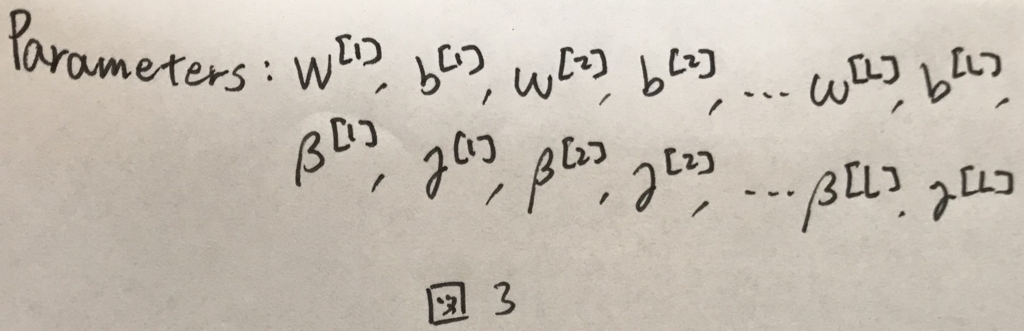 Parameters: W[1], b[1], W[2], b[2], ... W[L], b[L],
β[1], γ[1], β[2], γ[2], ... β[L], γ[L]
图 3